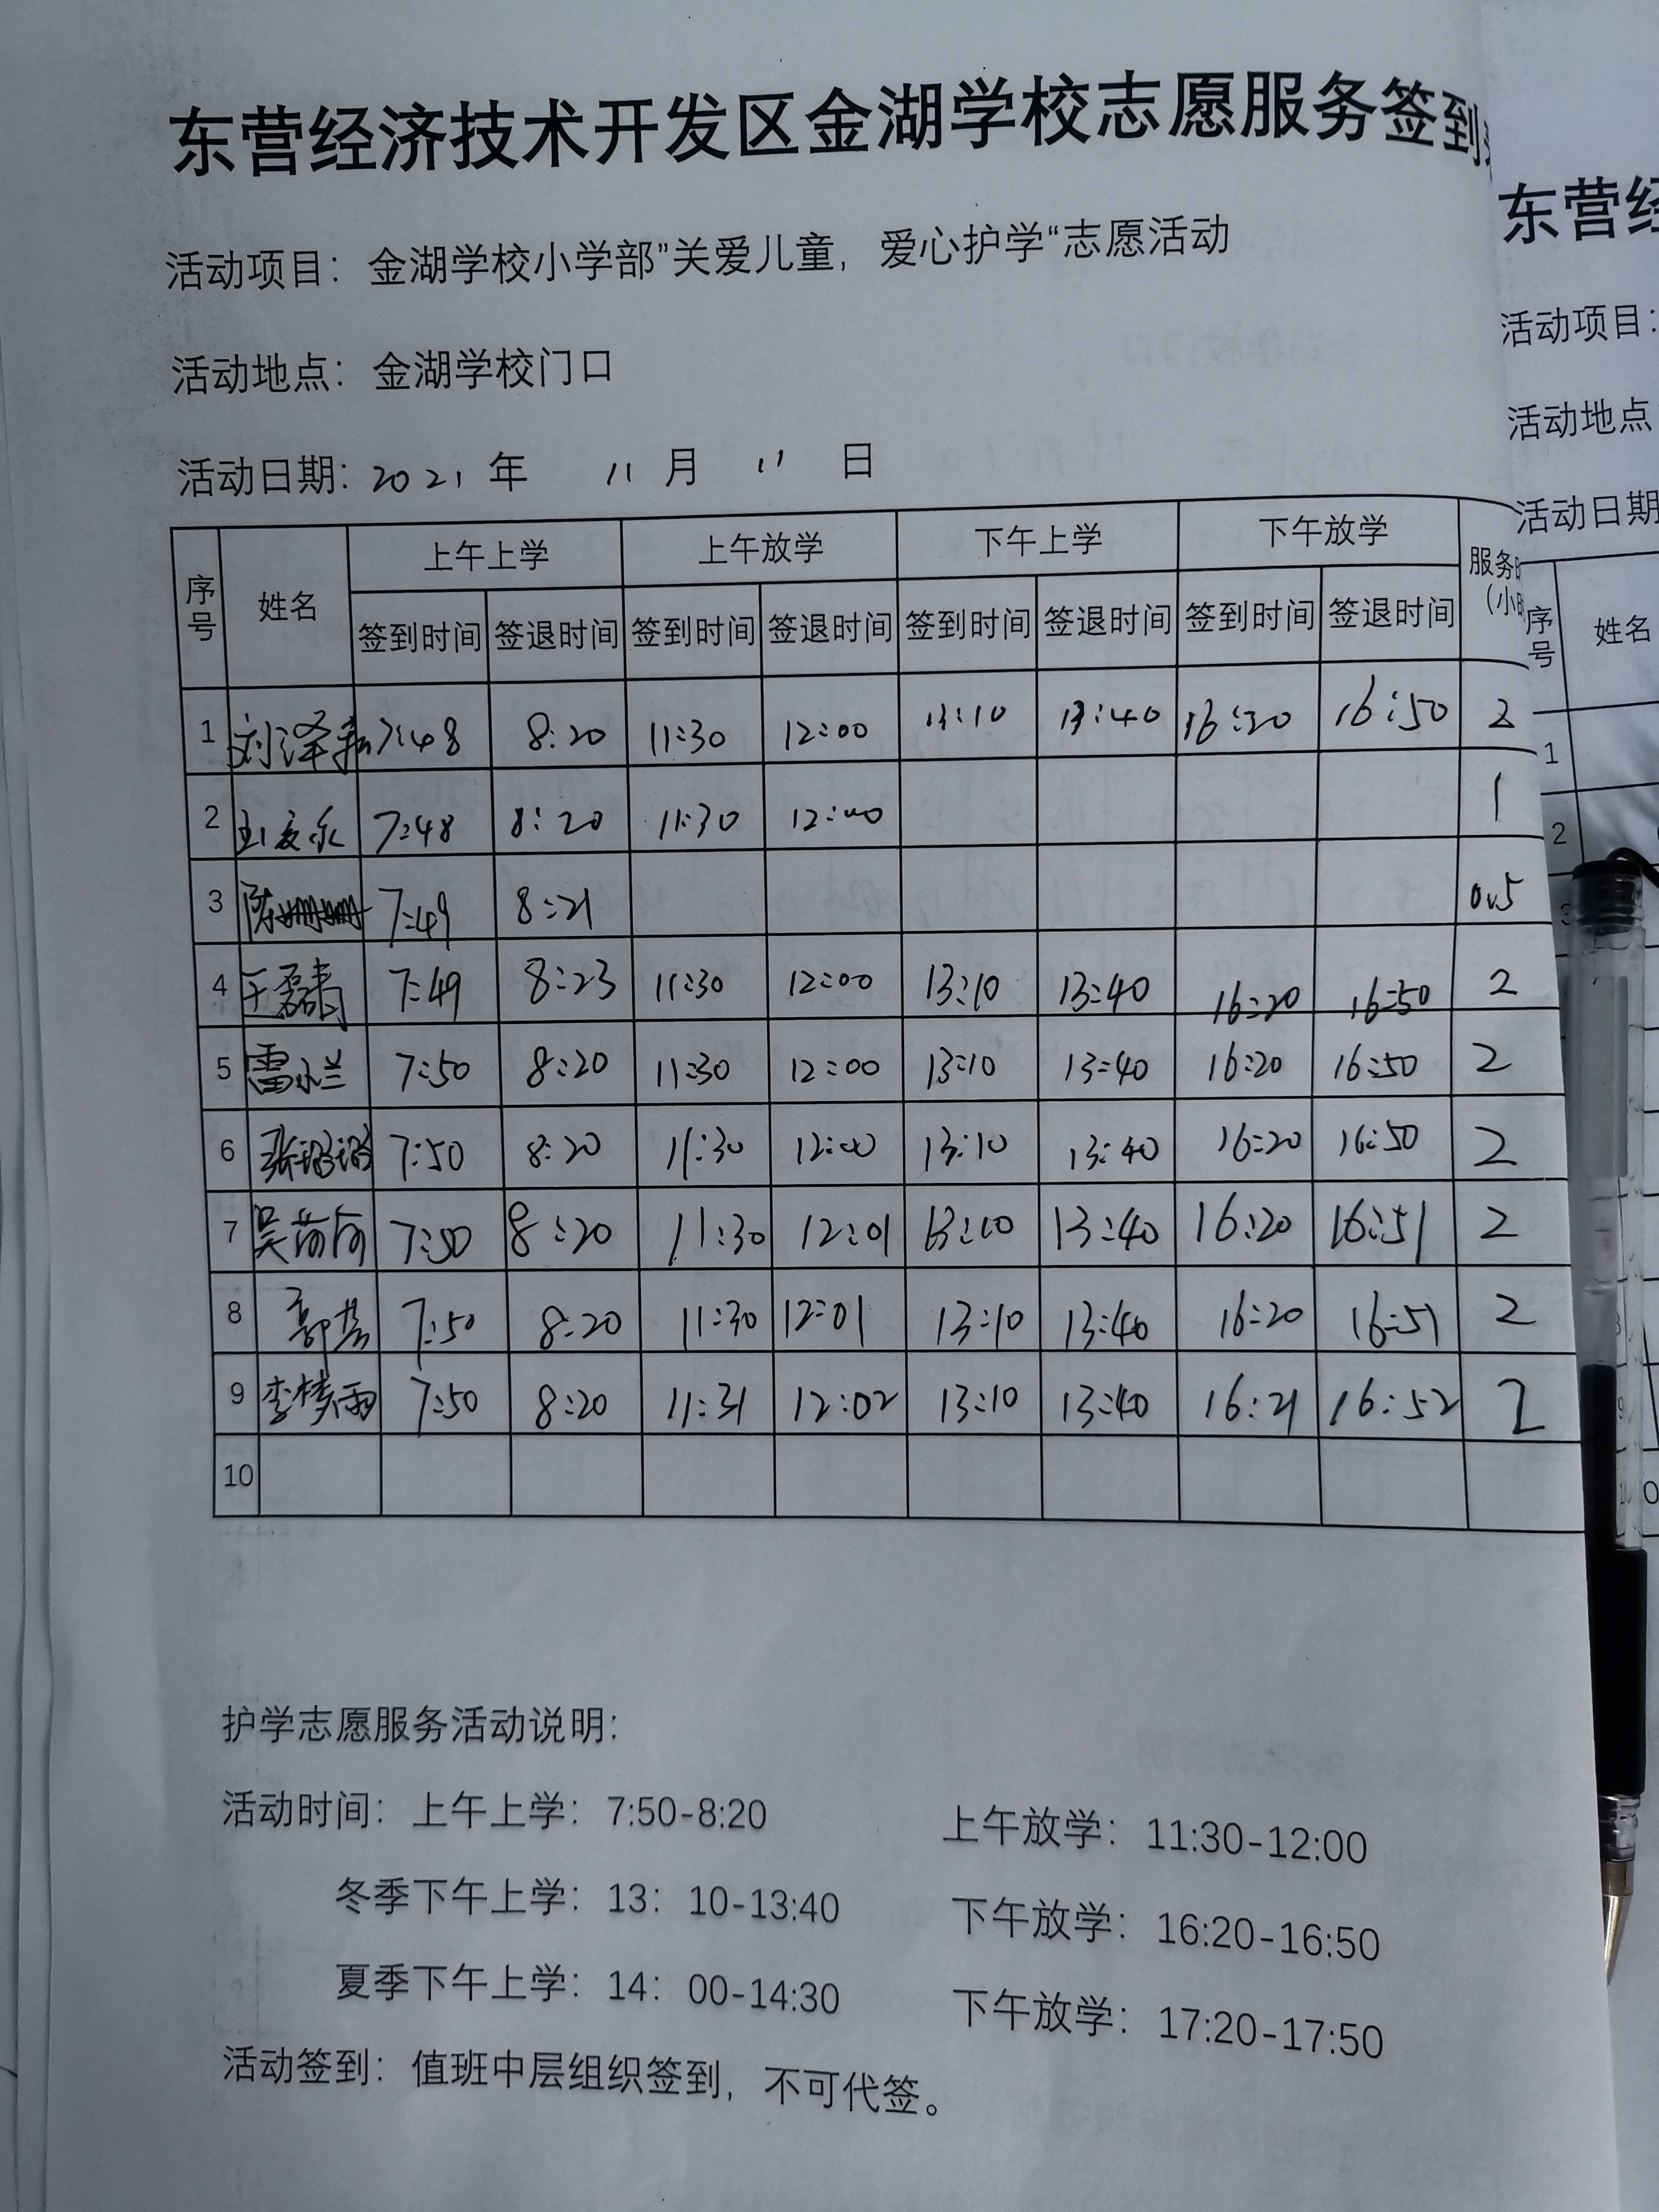 东营经济技术开发区金湖学校志愿服务签到
活动项目：金湖学校小学部”关爱儿童，爱心护学“志愿活动
活动地点：金湖学校门口
活动日期：2021 年 11 月 11 日
序号 姓名 上午上学 上午放学 下午上学 下午放学 服务 (小
签到时间 签退时间 签到时间 签退时间 签到时间 签退时间 签到时间 签退时间
1 刘泽 7:48 8:20 11:30 12:00 13:10 13:40 16:20 16:50 2
2 7:48 8:20 11:30 12:00 1
3 陈姗姗 7:49 8:21 0.5
4 王磊青 7:49 8:23 11:30 12:00 13:10 13:40 16:20 16:50 2
5 雷小兰 7:50 8:20 11:30 12:00 13:10 13:40 16:20 16:50 2
6 张璐璐 7:50 8:20 11:30 12:00 13:10 13:40 16:20 16:50 2
7 吴荷荷 7:50 8:20 11:30 12:01 13:10 13:40 16:20 16:51 2
8 郭 7:50 8:20 11:30 12:01 13:10 13:40 16:20 16:51 2
9 李梦雨 7:50 8:20 11:31 12:02 13:10 13:40 16:21 16:52 2
10
护学志愿服务活动说明：
活动时间：上午上学：7:50-8:20 上午放学：11:30-12:00
冬季下午上学：13：10-13:40 下午放学：16:20-16:50
夏季下午上学：14：00-14:30 下午放学：17:20-17:50
活动签到：值班中层组织签到，不可代签。
东营经
活动项目：
活动地点
活动日期
序号 姓名
1
2